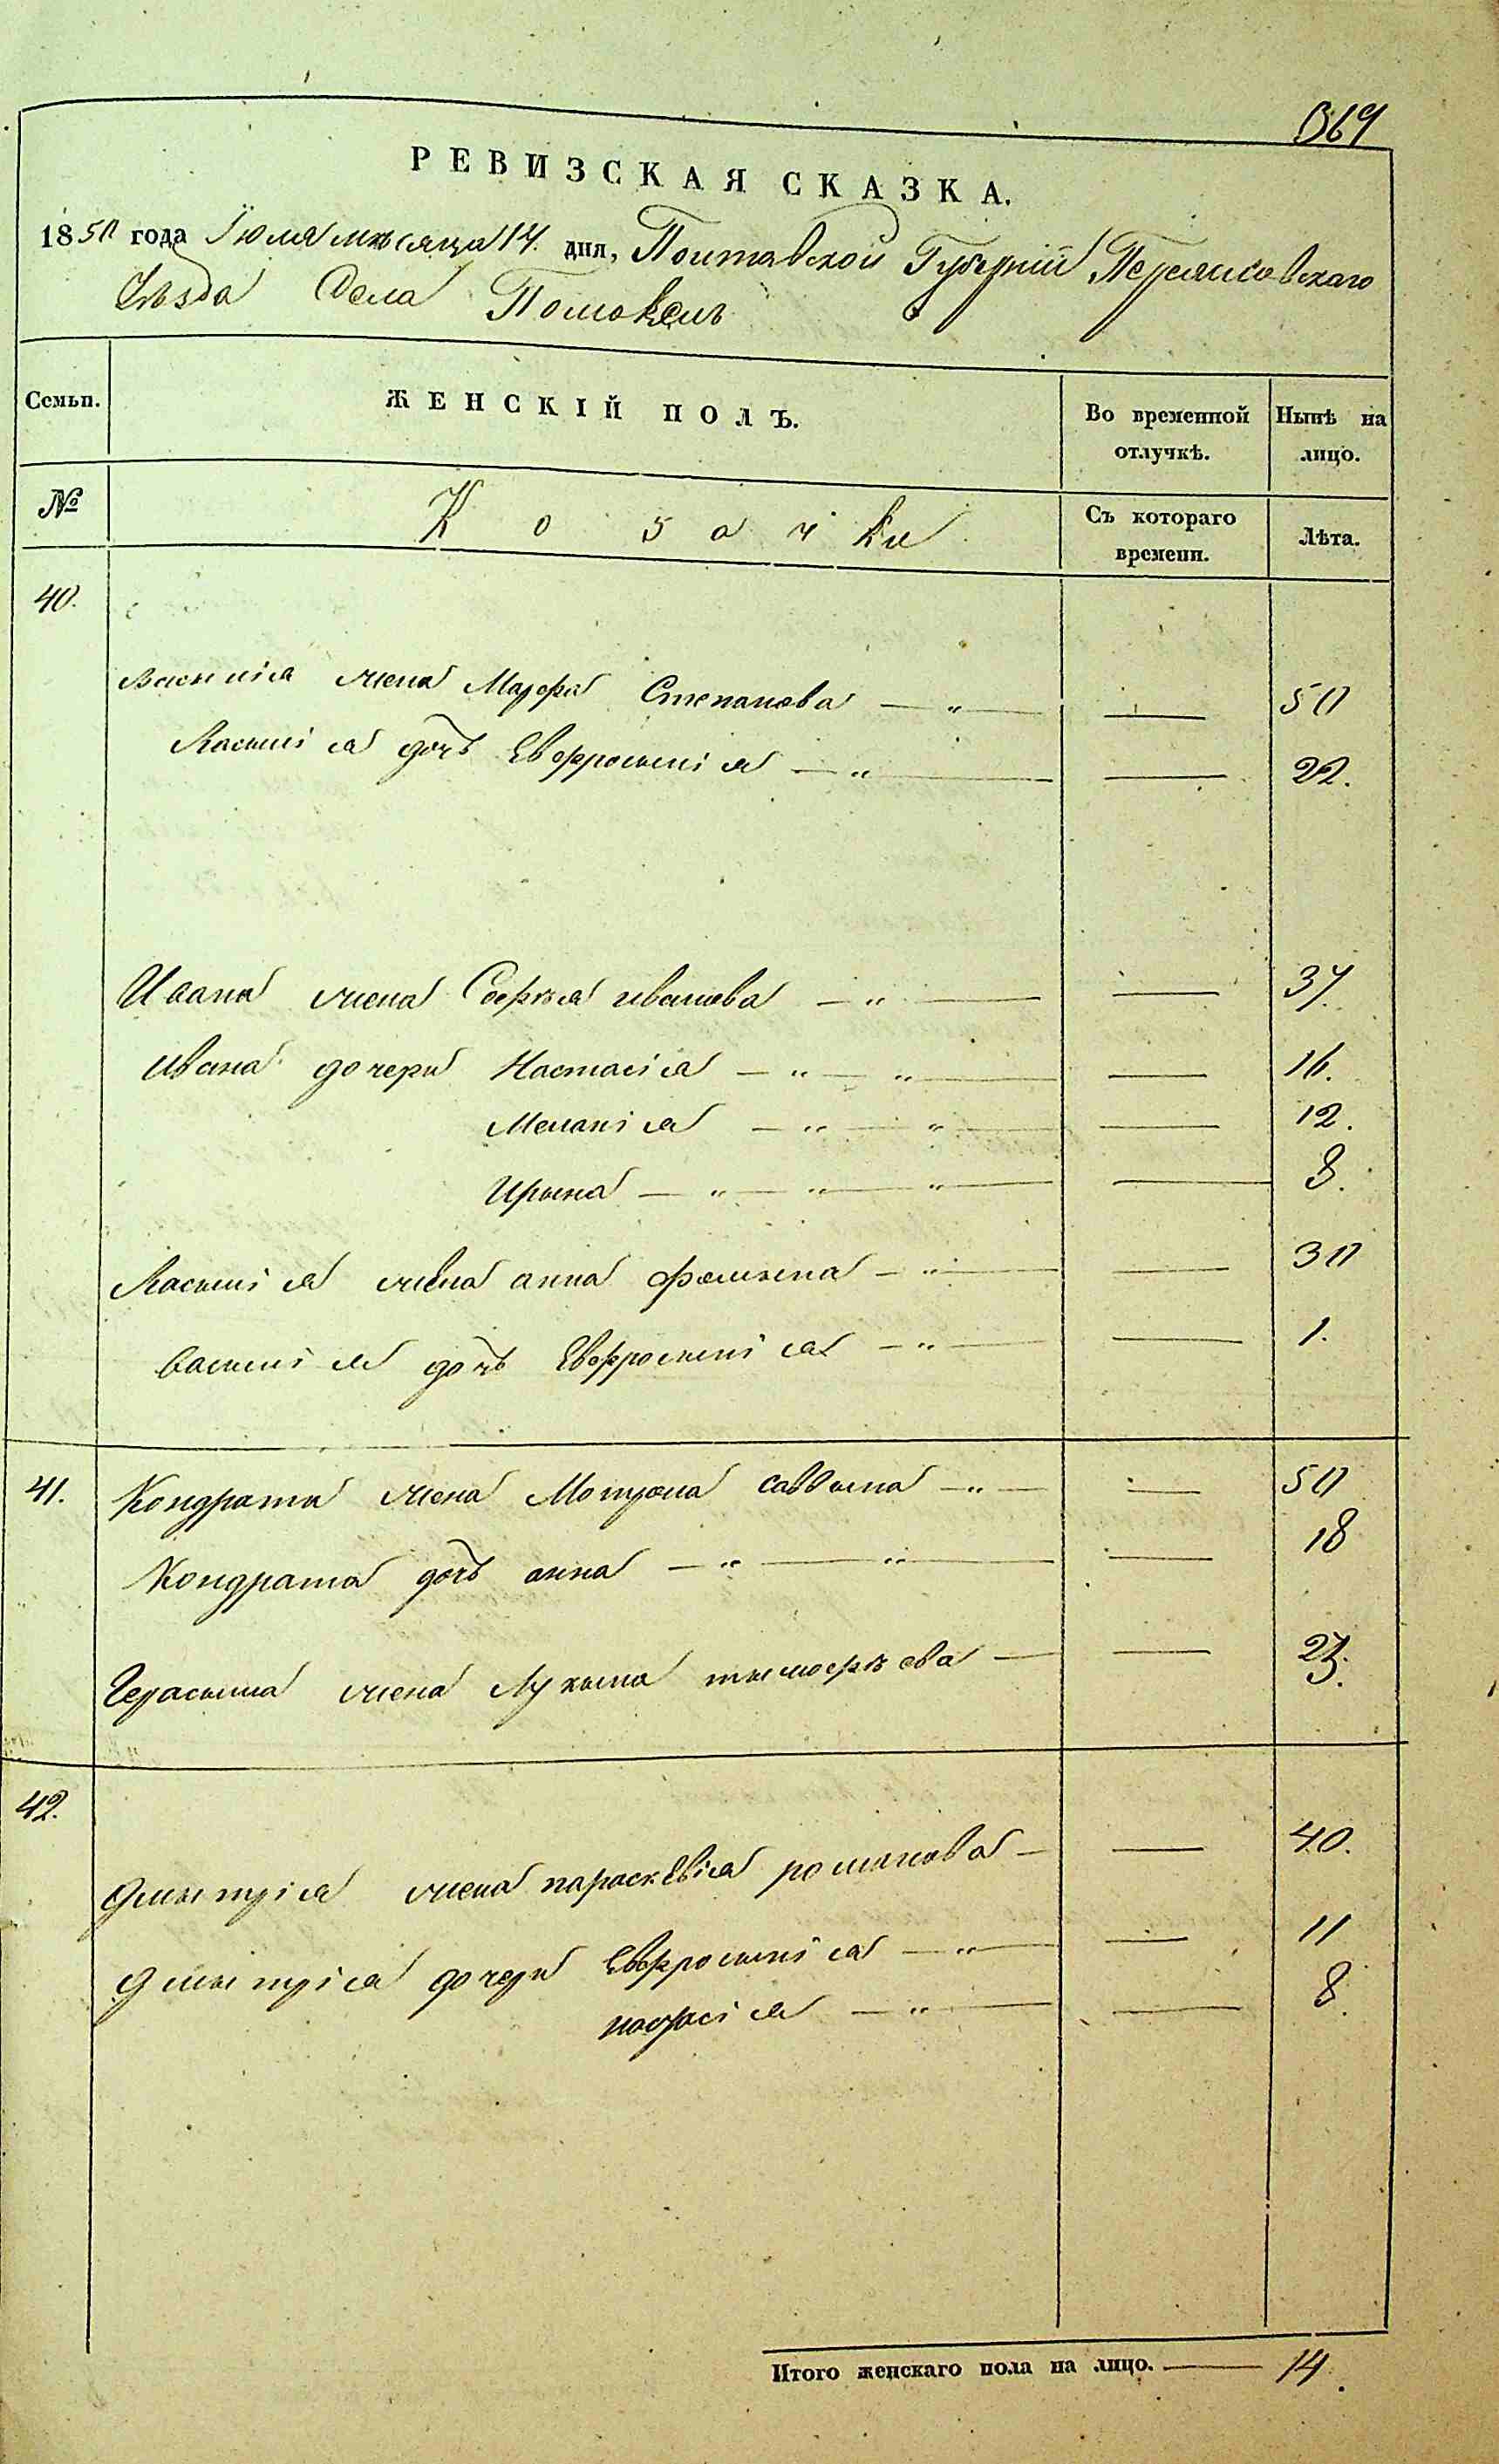 369
РЕВИЗСКАЯ СКАЗКА.
1850 года Іюля мѣсяца 14. дня, Полтавской Губерніи Переясловскаго
Уѣзда Села Помоклъ
Семьи. ЖЕНСКІЙ ПОЛЪ. Во временной отлучкѣ. Нынѣ на лицо.
№ Козачки Съ котораго времени. Лѣта.
40.
Василія жена Марфа Степанова — " — — 50
Василія дочь Евфросинія — " — — 22.
Ивана жена Софѣя иванова — " — — 37.
Ивана дочери Настасія — " — " — — 16.
Меланія — " — " — — 12.
Ирина — " — " — " — — 8.
Василія жена анна фомина — " — — 30
василія дочь Евфросинія — " — — 1.
41. Кондрата жена Мотрона саввина — " — — 50
Кондрата дочь анна — " — " — — 18
Герасыма жена Лукина тимофѣева — — 23.
42.
Дмытрія жена параскевія романова — — 40.
Дмытрія дочери Евфросинія — " — — 11
настасія — " — — 8.
Итого женскаго пола на лицо. — 14.